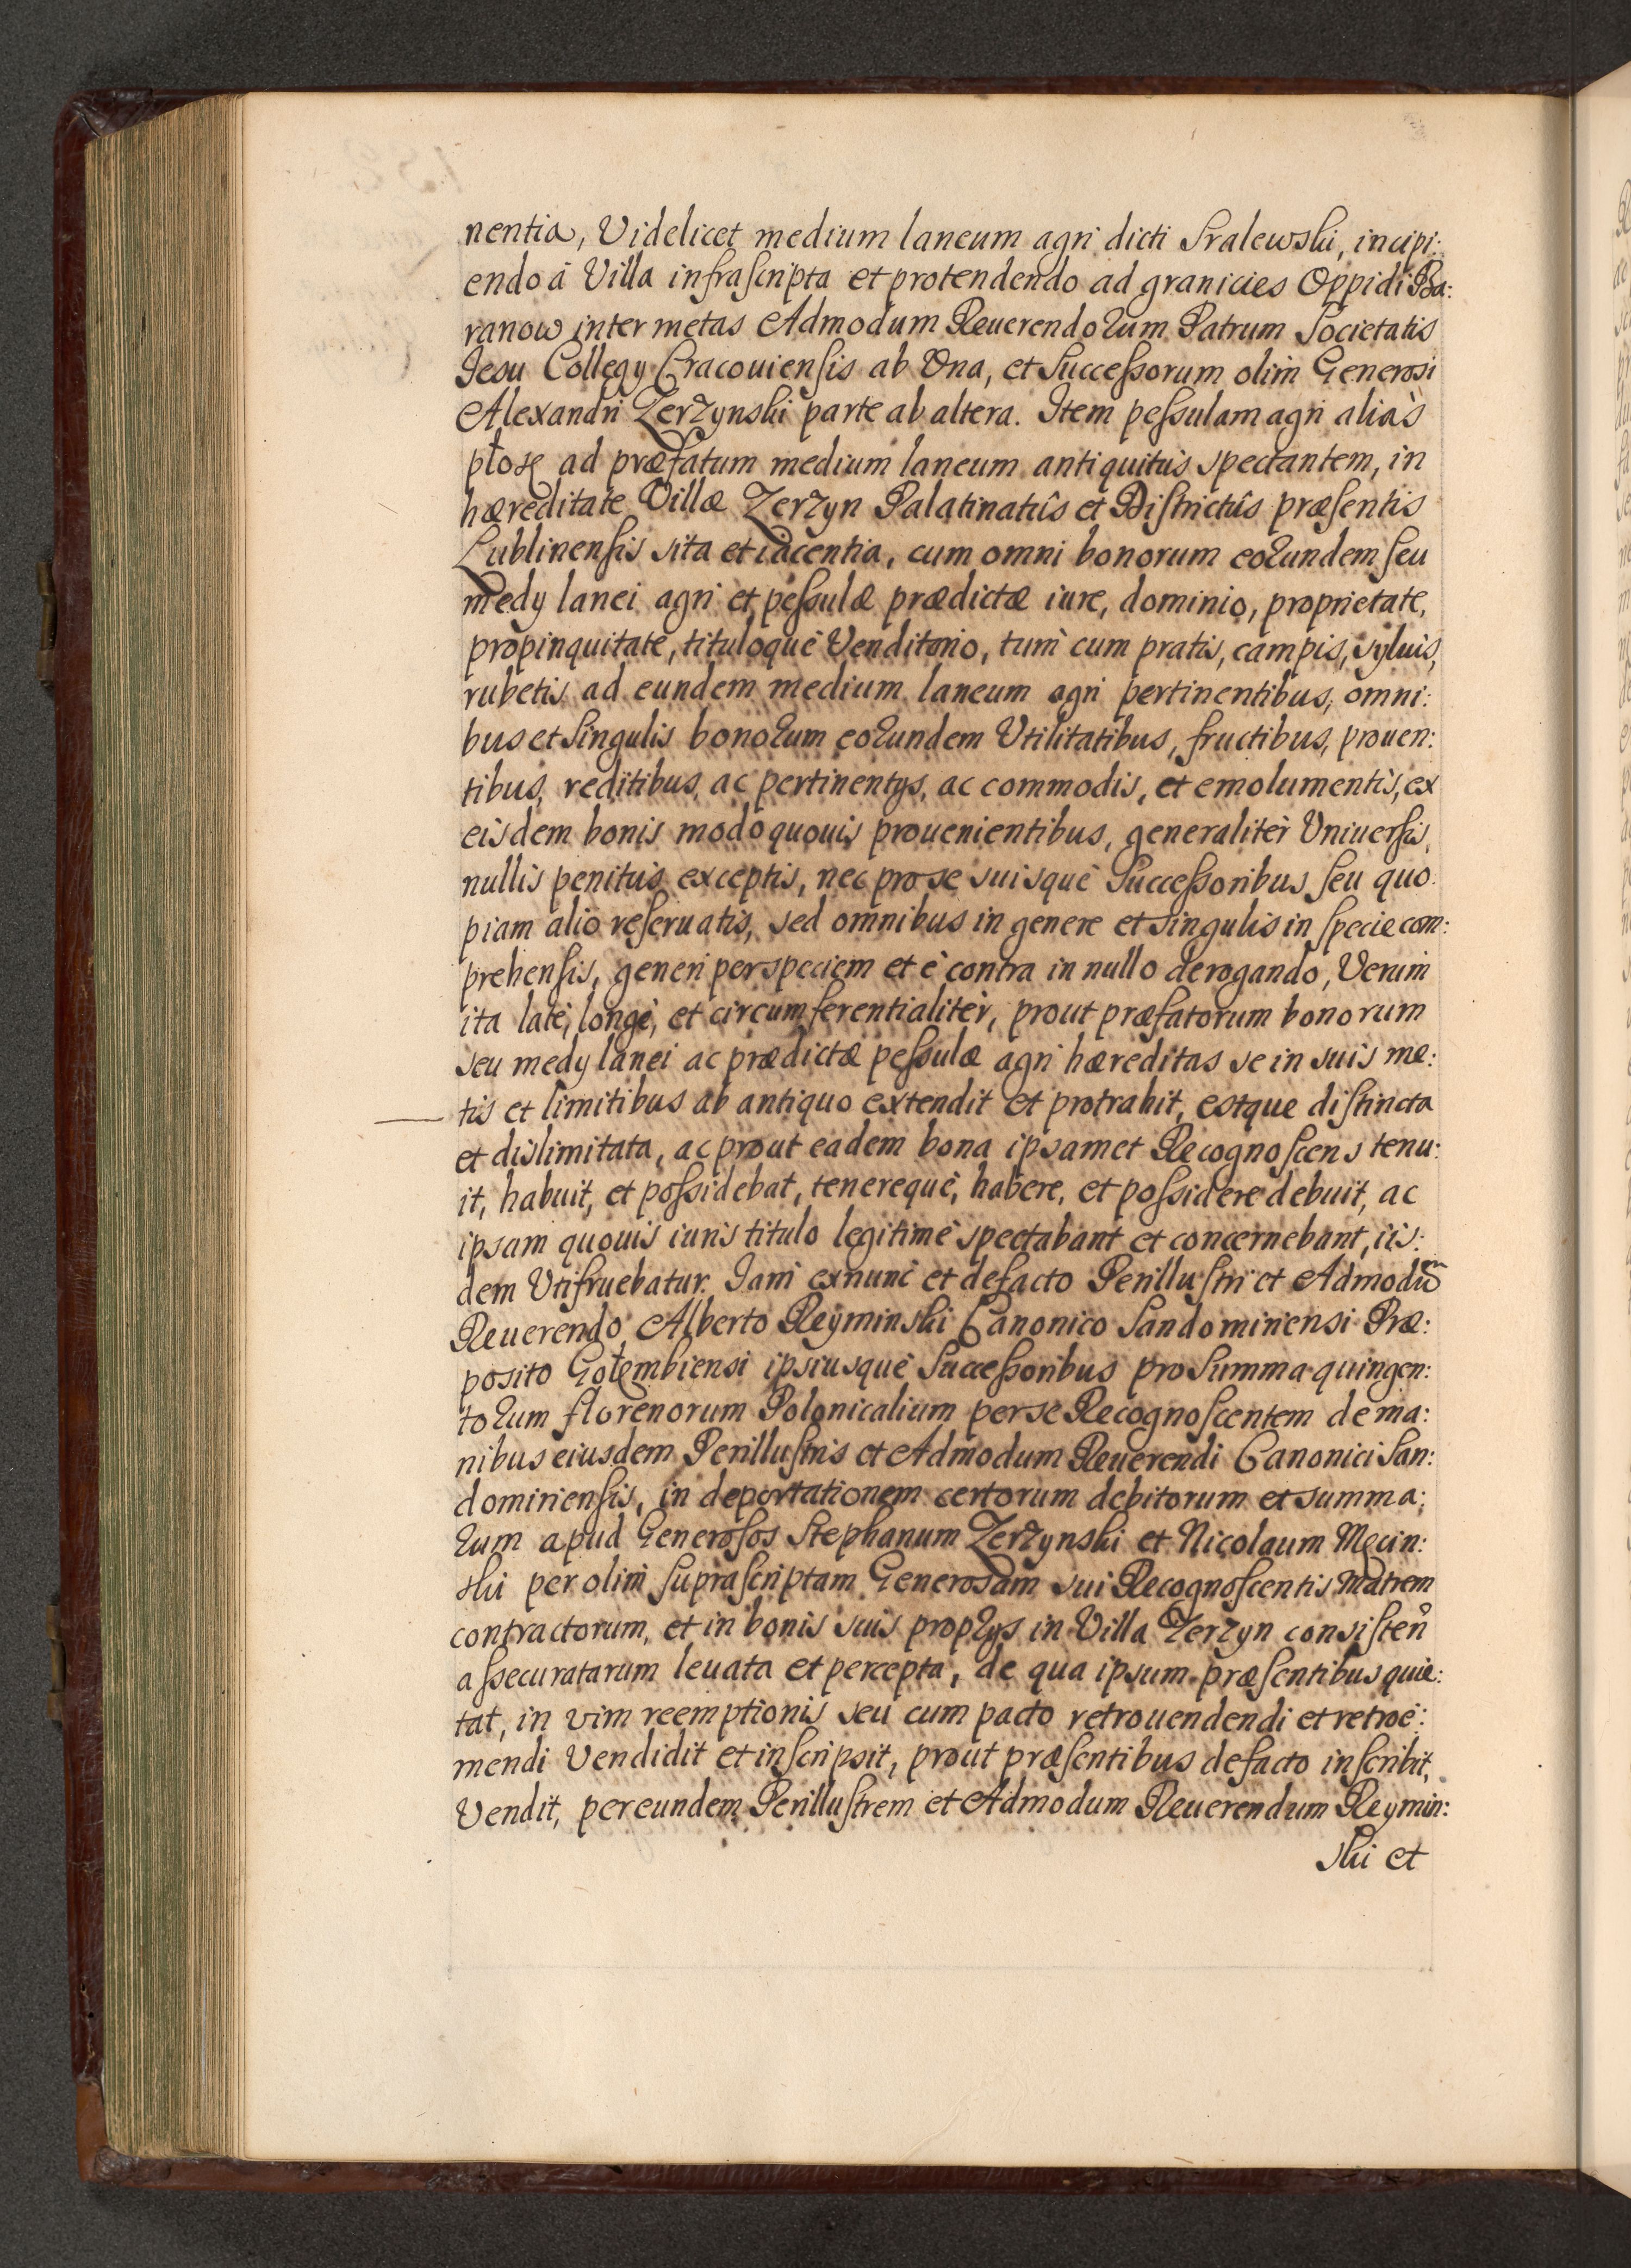 nentia, Videlicet medium laneum agri dicti Sralewski, incipi:
endo á Villa infrascripta et protendendo ad granicies Oppidi Ba:
ranow inter metas Admodum Reuerendorum Patrum Societatis
Iesu Collegy Cracouiensis ab Vna, et Successorum olim Generosi
Alexandri Zerzynski parte ab altera. Item pessulam agri aliàs
płosę ad præfatum medium laneum antiquitùs spectantem, in
hæreditate Villæ Zerzyn Palatinatûs et Districtûs præsentis
Lublinensis sita et iacentia, cum omni bonorum eorundem seu
medy lanei agri et pessulæ prædictæ iure, dominio, proprietate,
propinquitate, tituloquè Venditorio, tùm cum pratis, campis, syluis,
rubetis ad eundem medium laneum agri pertinentibus, omni:
bus et Singulis bonorum eorundem Vtilitatibus, fructibus, prouen:
tibus, reditibus, ac pertinentys, ac commodis, et emolumentis, ex
eisdem bonis modo quouis prouenientibus, generalitèr Vniuersis,
nullis penitùs exceptis, nec pro se suisquè Successoribus seu quo
piam alio reseruatis, sed omnibus in genere et singulis in specie com:
prehensis, generi per speciem et è contra in nullo derogando, Verùm
ita latè, longè, et circumferentialitèr, prout præfatorum bonorum
seu medy lanei ac prædictæ pessulæ agri hæreditas se in suis me:
tis et limitibus ab antiquo extendit et protrahit, estque distincta
et dislimitata, ac prout eadem bona ipsamet Recognoscens tenu:
it, habuit, et possidebat, tenerequè, habere, et possidere debuit, ac
ipsam quouis iuris titulo legitimè spectabant et concernebant, iis:
dem Vtifruebatur. Iam exnunc et defacto Perillustri et Admodũm
Reuerendo Alberto Reyminski Canonico Sandomiriensi Præ:
posito Gołembiensi ipsiusquè Successoribus pro Summa quingen:
torum florenorum Polonicalium per se Recognoscentem de ma:
nibus eiusdem Perillustris et Admodum Reuerendi Canonici San:
domiriensis, in deportationem certorum debitorum et summa:
rum apud Generosos Stephanum Zerzynski et Nicolaum Męcin:
ski per olim suprascriptam Generosam sui Recognoscentis Matrem
contractorum, et in bonis suis proprys in Villa Zerzyn consisteñ
assecuratarum leuata et percepta, de qua ipsum præsentibus quie:
tat, in vim reemptionis seu cum pacto retrouendendi et retroè:
mendi Vendidit et inscripsit, prout præsentibus defacto inscribit,
Vendit, per eundem Perillustrem et Admodum Reuerendum Reymin:
ski et